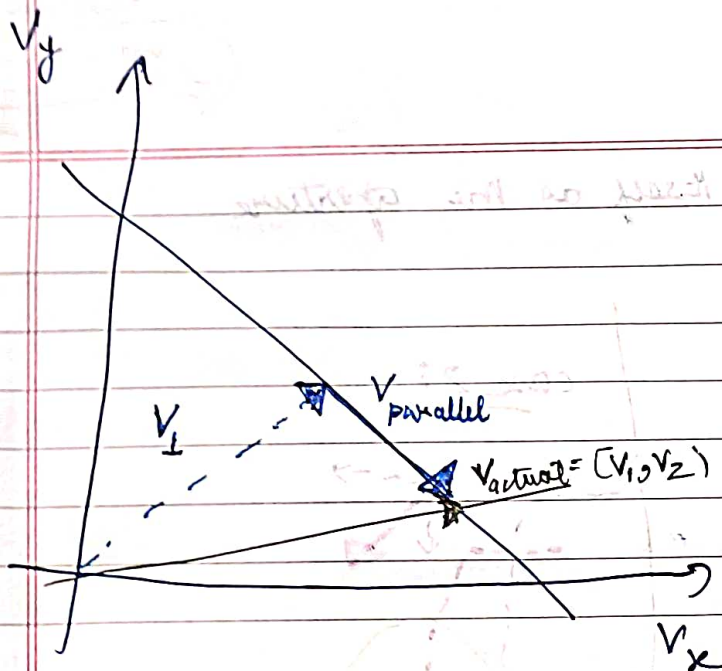 Vy
V⊥
Vparallel
Vactual = (V1, V2)
Vx